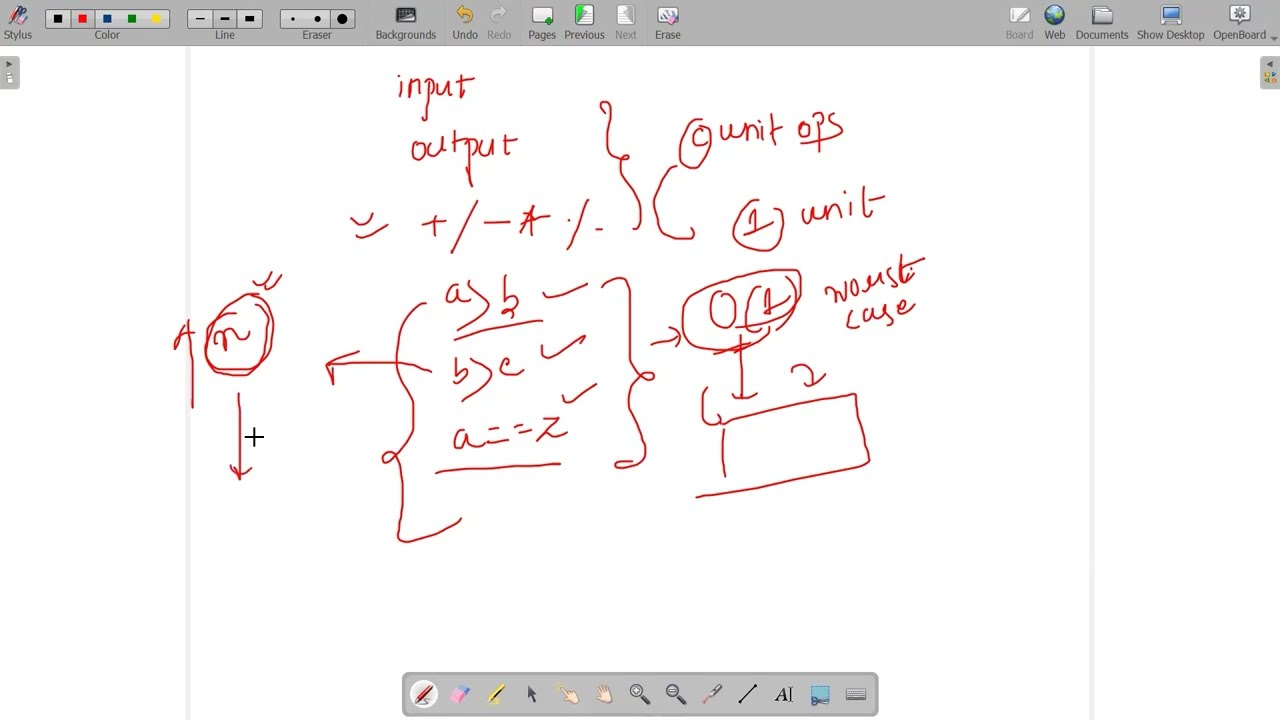 Stylus Color Line Eraser Backgrounds Undo Redo Pages Previous Next Erase Board Web Documents Show Desktop OpenBoard
input
output
c unit ops
+ / - * % 
1 unit
a>b
O(1) worst case
n
b>c
a==z
AI